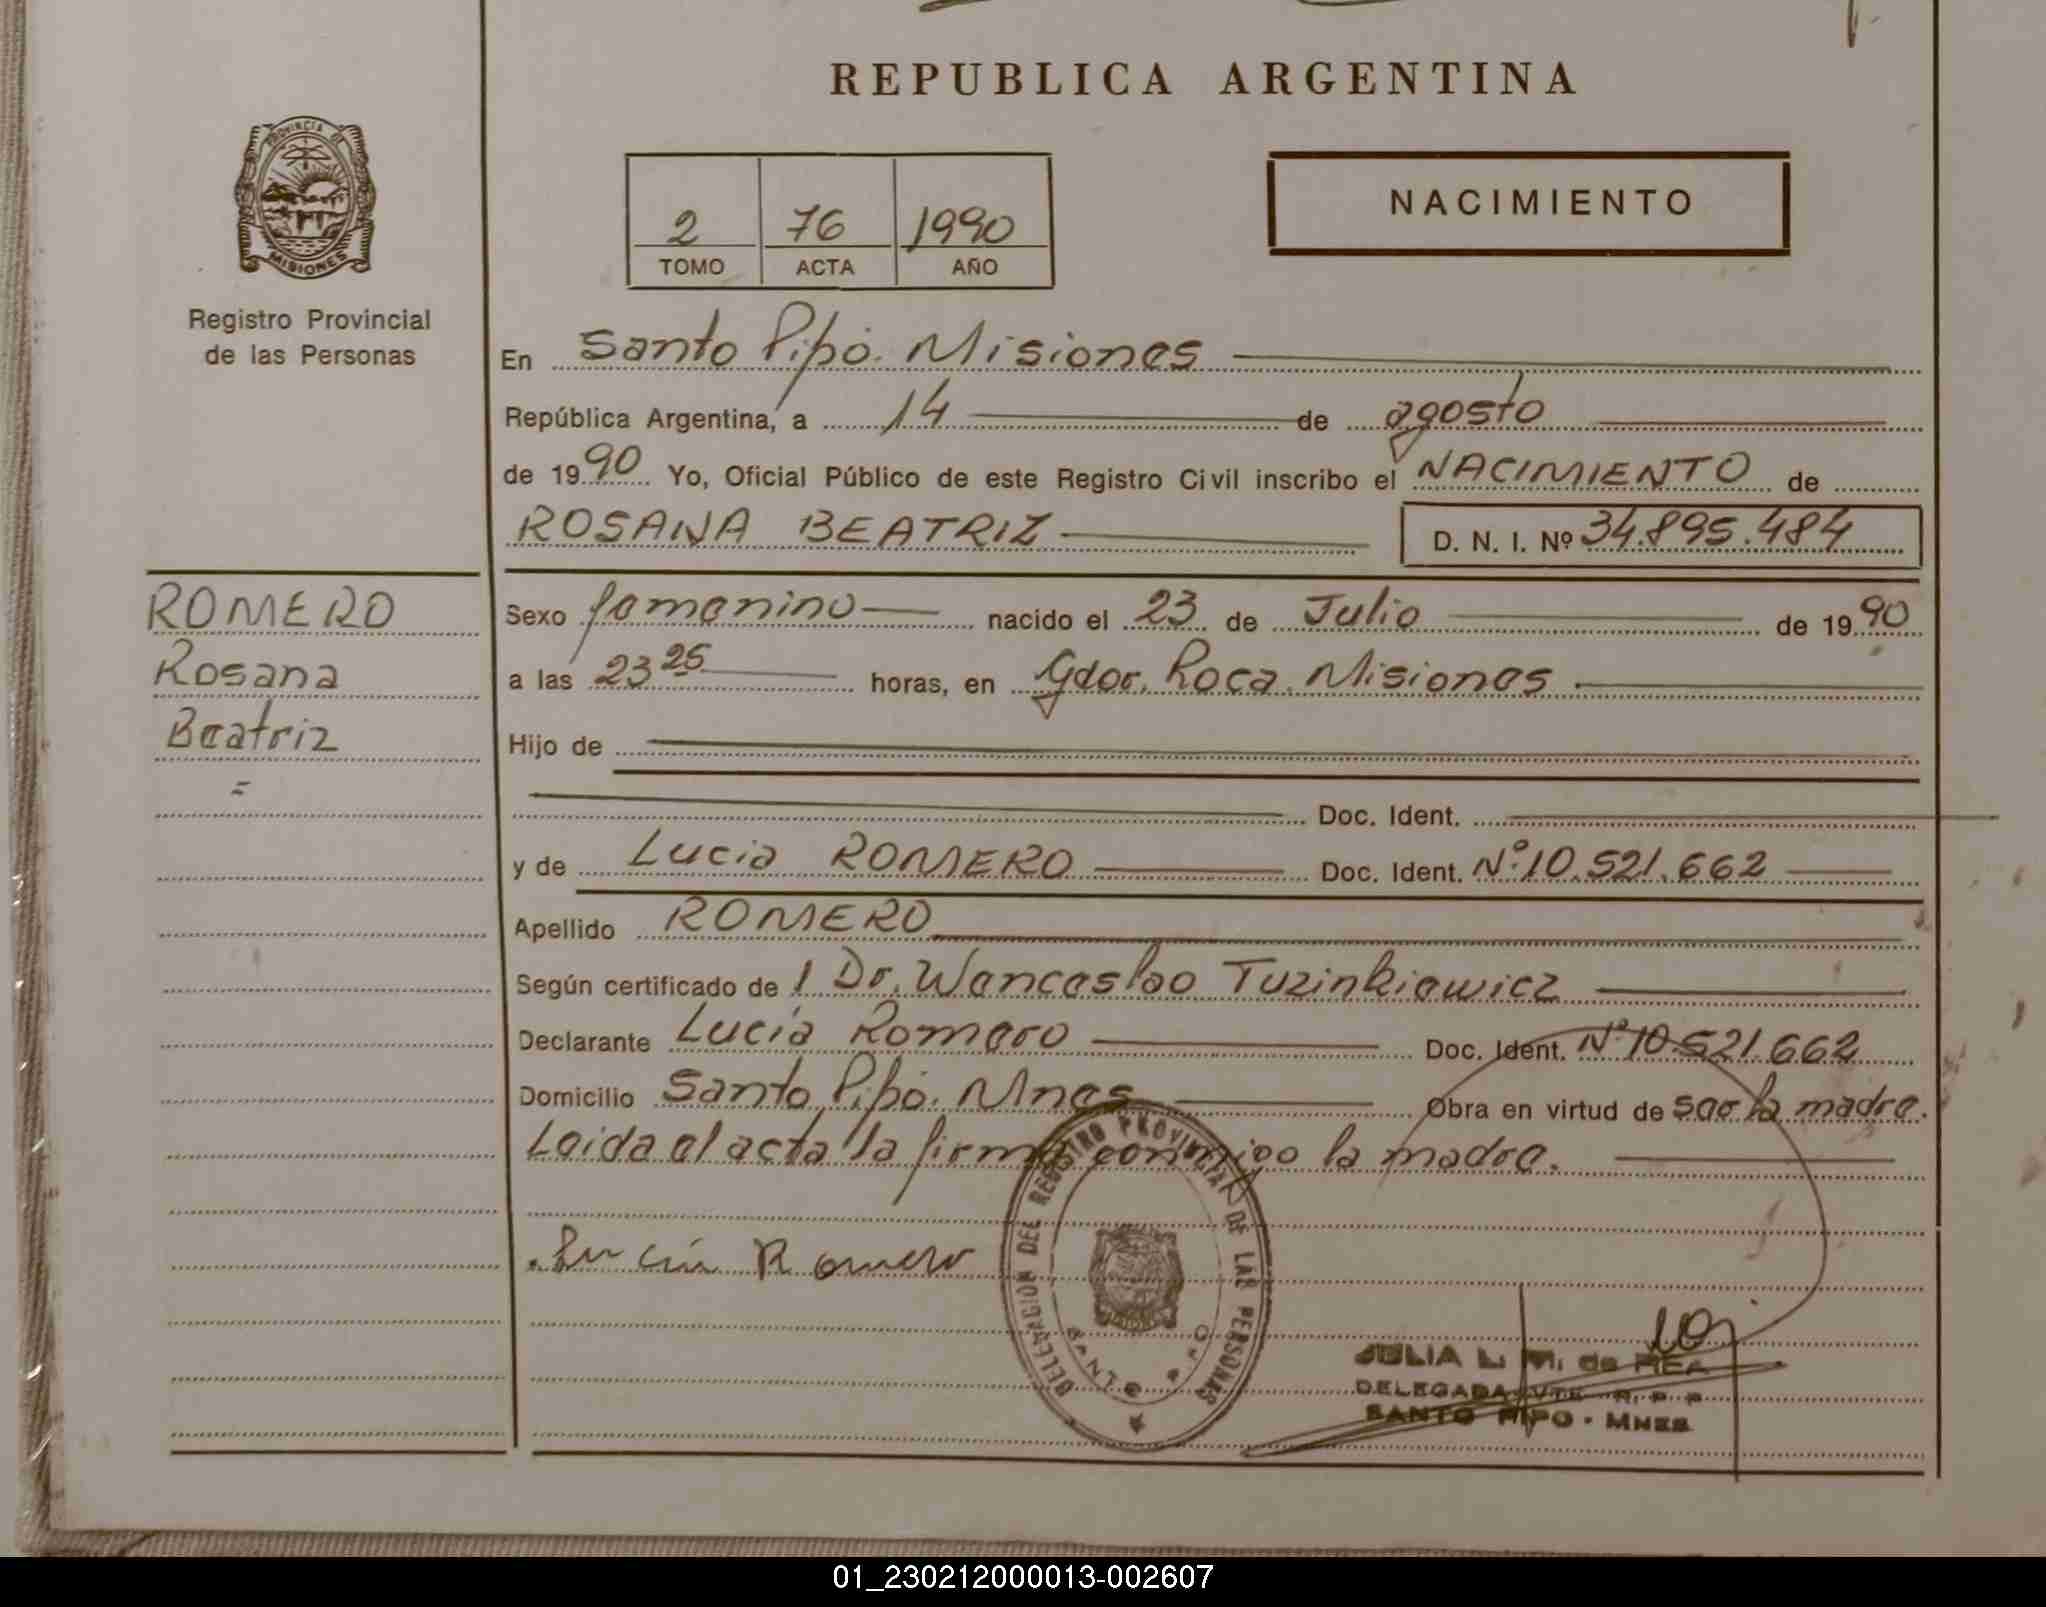 REPUBLICA ARGENTINA
PROVINCIA DE
MISIONES
Registro Provincial
de las Personas
NACIMIENTO
2 76 1990
TOMO ACTA AÑO
En Santo Pipó. Misiones
República Argentina, a 14 de agosto
de 1990 Yo, Oficial Público de este Registro Civil inscribo el NACIMIENTO de
ROSANA BEATRIZ D. N. I. Nº 34.895.484
ROMERO
Rosana
Beatriz
=
Sexo femenino nacido el 23 de Julio de 1990
a las 23 25 horas, en Gdor. Roca. Misiones
Hijo de
Doc. Ident.
y de Lucia ROMERO Doc. Ident. Nº 10.521.662
Apellido ROMERO
Según certificado de l Dr. Wenceslao Tuzinkiewicz
Declarante Lucía Romero Doc. Ident. Nº 10.521.662
Domicilio Santo Pipó. Mnes Obra en virtud de ser la madre.
Leida el acta la firma conmigo la madre.
Lucía Romero
DELEGACION DEL REGISTRO PROVINCIAL DE LAS PERSONAS
SANTO PIPO
JULIA L. M. de REA
DELEGADA VTE R. P. P
SANTO PIPO - MNES
01_230212000013-002607